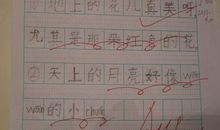 ①地上的花儿真美呀,
尤其是那朵红色的花。
②天上的月亮好像wān
wān的小chuán